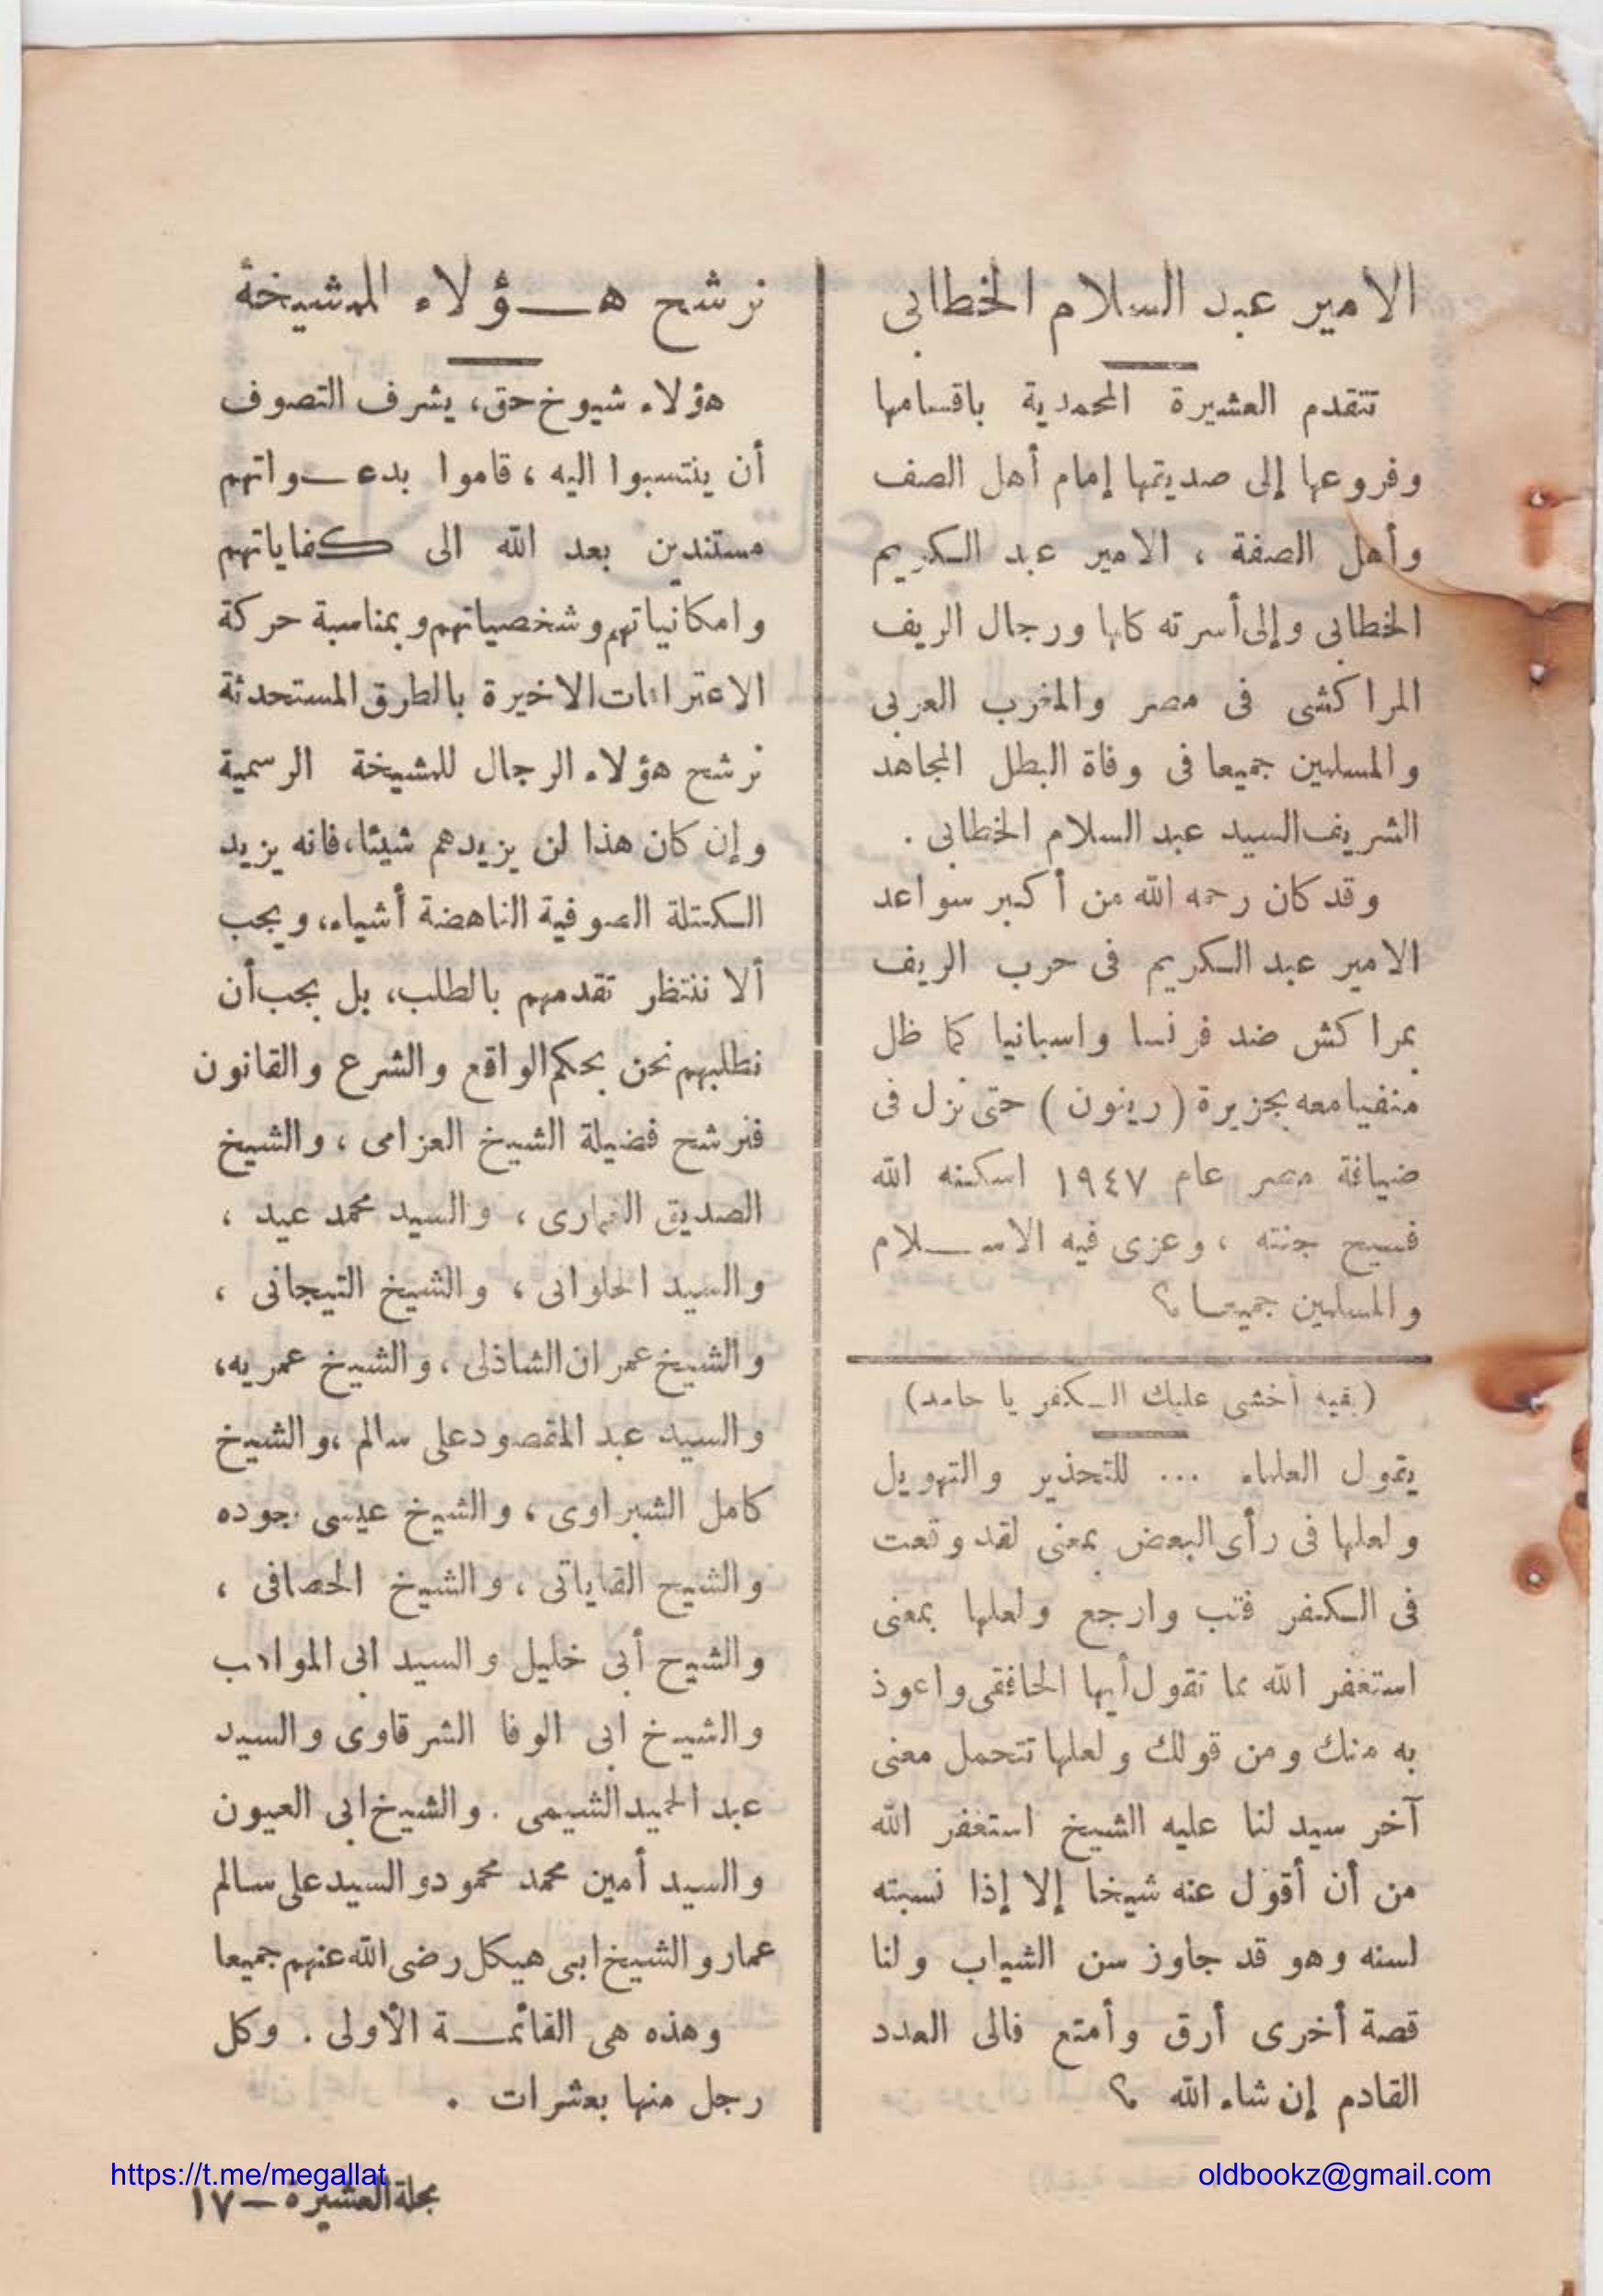 الامير عبد السلام الخطابى
تتقدم العشيرة المحمدية باقسامها
وفروعها إلى صديقها إمام أهل الصف
وأهل الصفة ، الامير عبد الكريم
الخطابى وإلى أسرته كلها ورجال الريف
المراكشى فى مصر والمغرب العربى
والمسلمين جميعا فى وفاة البطل المجاهد
الشريف السيد عبد السلام الخطابى .
وقد كان رحمه الله من أكبر سواعد
الامير عبد الكريم فى حرب الريف
بمراكش ضد فرنسا واسبانيا كما ظل
منفيا معه بجزيرة ( رينون ) حتى نزل فى
ضيافة مصر عام ١٩٤٧ اسكنه الله
فسيح جنته ، وعزى فيه الاسـلام
والمسلمين جميعا ؟
( بقيه أخشى عليك الكفر يا حامد )
يقول العلماء ... للتحذير والتهويل
ولعلها فى رأى البعض بمعنى لقد وقعت
فى الكفر فتب وارجع ولعلها بمعنى
استغفر الله مما تقول أيها الحافقى واعوذ
به منك ومن قولك ولعلها تتحمل معنى
آخر سيد لنا عليه الشيخ استغفر الله
من أن أقول عنه شيخا إلا إذا نسبته
لسنه وهو قد جاوز سن الشباب ولنا
قصة أخرى أرق وأمتع فالى العدد
القادم إن شاء الله ؟
نرشح هـؤلاء للمشيخة
هؤلاء شيوخ حق، يشرف التصوف
أن ينتسبوا اليه ، قاموا بدعـواتهم
مستندين بعد الله الى كفاياتهم
وامكانياتهم وشخصياتهم وبمناسبة حركة
الاعترافات الاخيرة بالطرق المستحدثة
نرشح هؤلاء الرجال للمشيخة الرسمية
وإن كان هذا لن يزيدهم شيئا، فانه يزيد
الكتلة الصوفية الناهضة أشياء، ويجب
ألا ننتظر تقدمهم بالطلب، بل يجب أن
نطلبهم نحن بحكم الواقع والشرع والقانون
فنرشح فضيلة الشيخ العزامى ، والشيخ
الصديق الغمارى ، والسيد محمد عيد ،
والسيد الحلوانى ، والشيخ التيجانى ،
والشيخ عمران الشاذلى ، والشيخ عمريه،
والسيد عبد المقصود على سالم ، والشيخ
كامل الشبراوى ، والشيخ عيسى جوده
والشيخ القاياتى ، والشيخ الحصافى ،
والشيخ أبى خليل والسيد ابى المواهب
والشيخ ابى الوفا الشرقاوى والسيد
عبد الحميد الشيمى . والشيخ ابى العيون
والسيد أمين محمد محمود والسيد على سالم
عمار والشيخ ابى هيكل رضى الله عنهم جميعا
وهذه هى القائمـة الأولى . وكل
رجل منها بعشرات .
https://t.me/megallat
oldbookz@gmail.com
مجلة العشيرة – ١٧